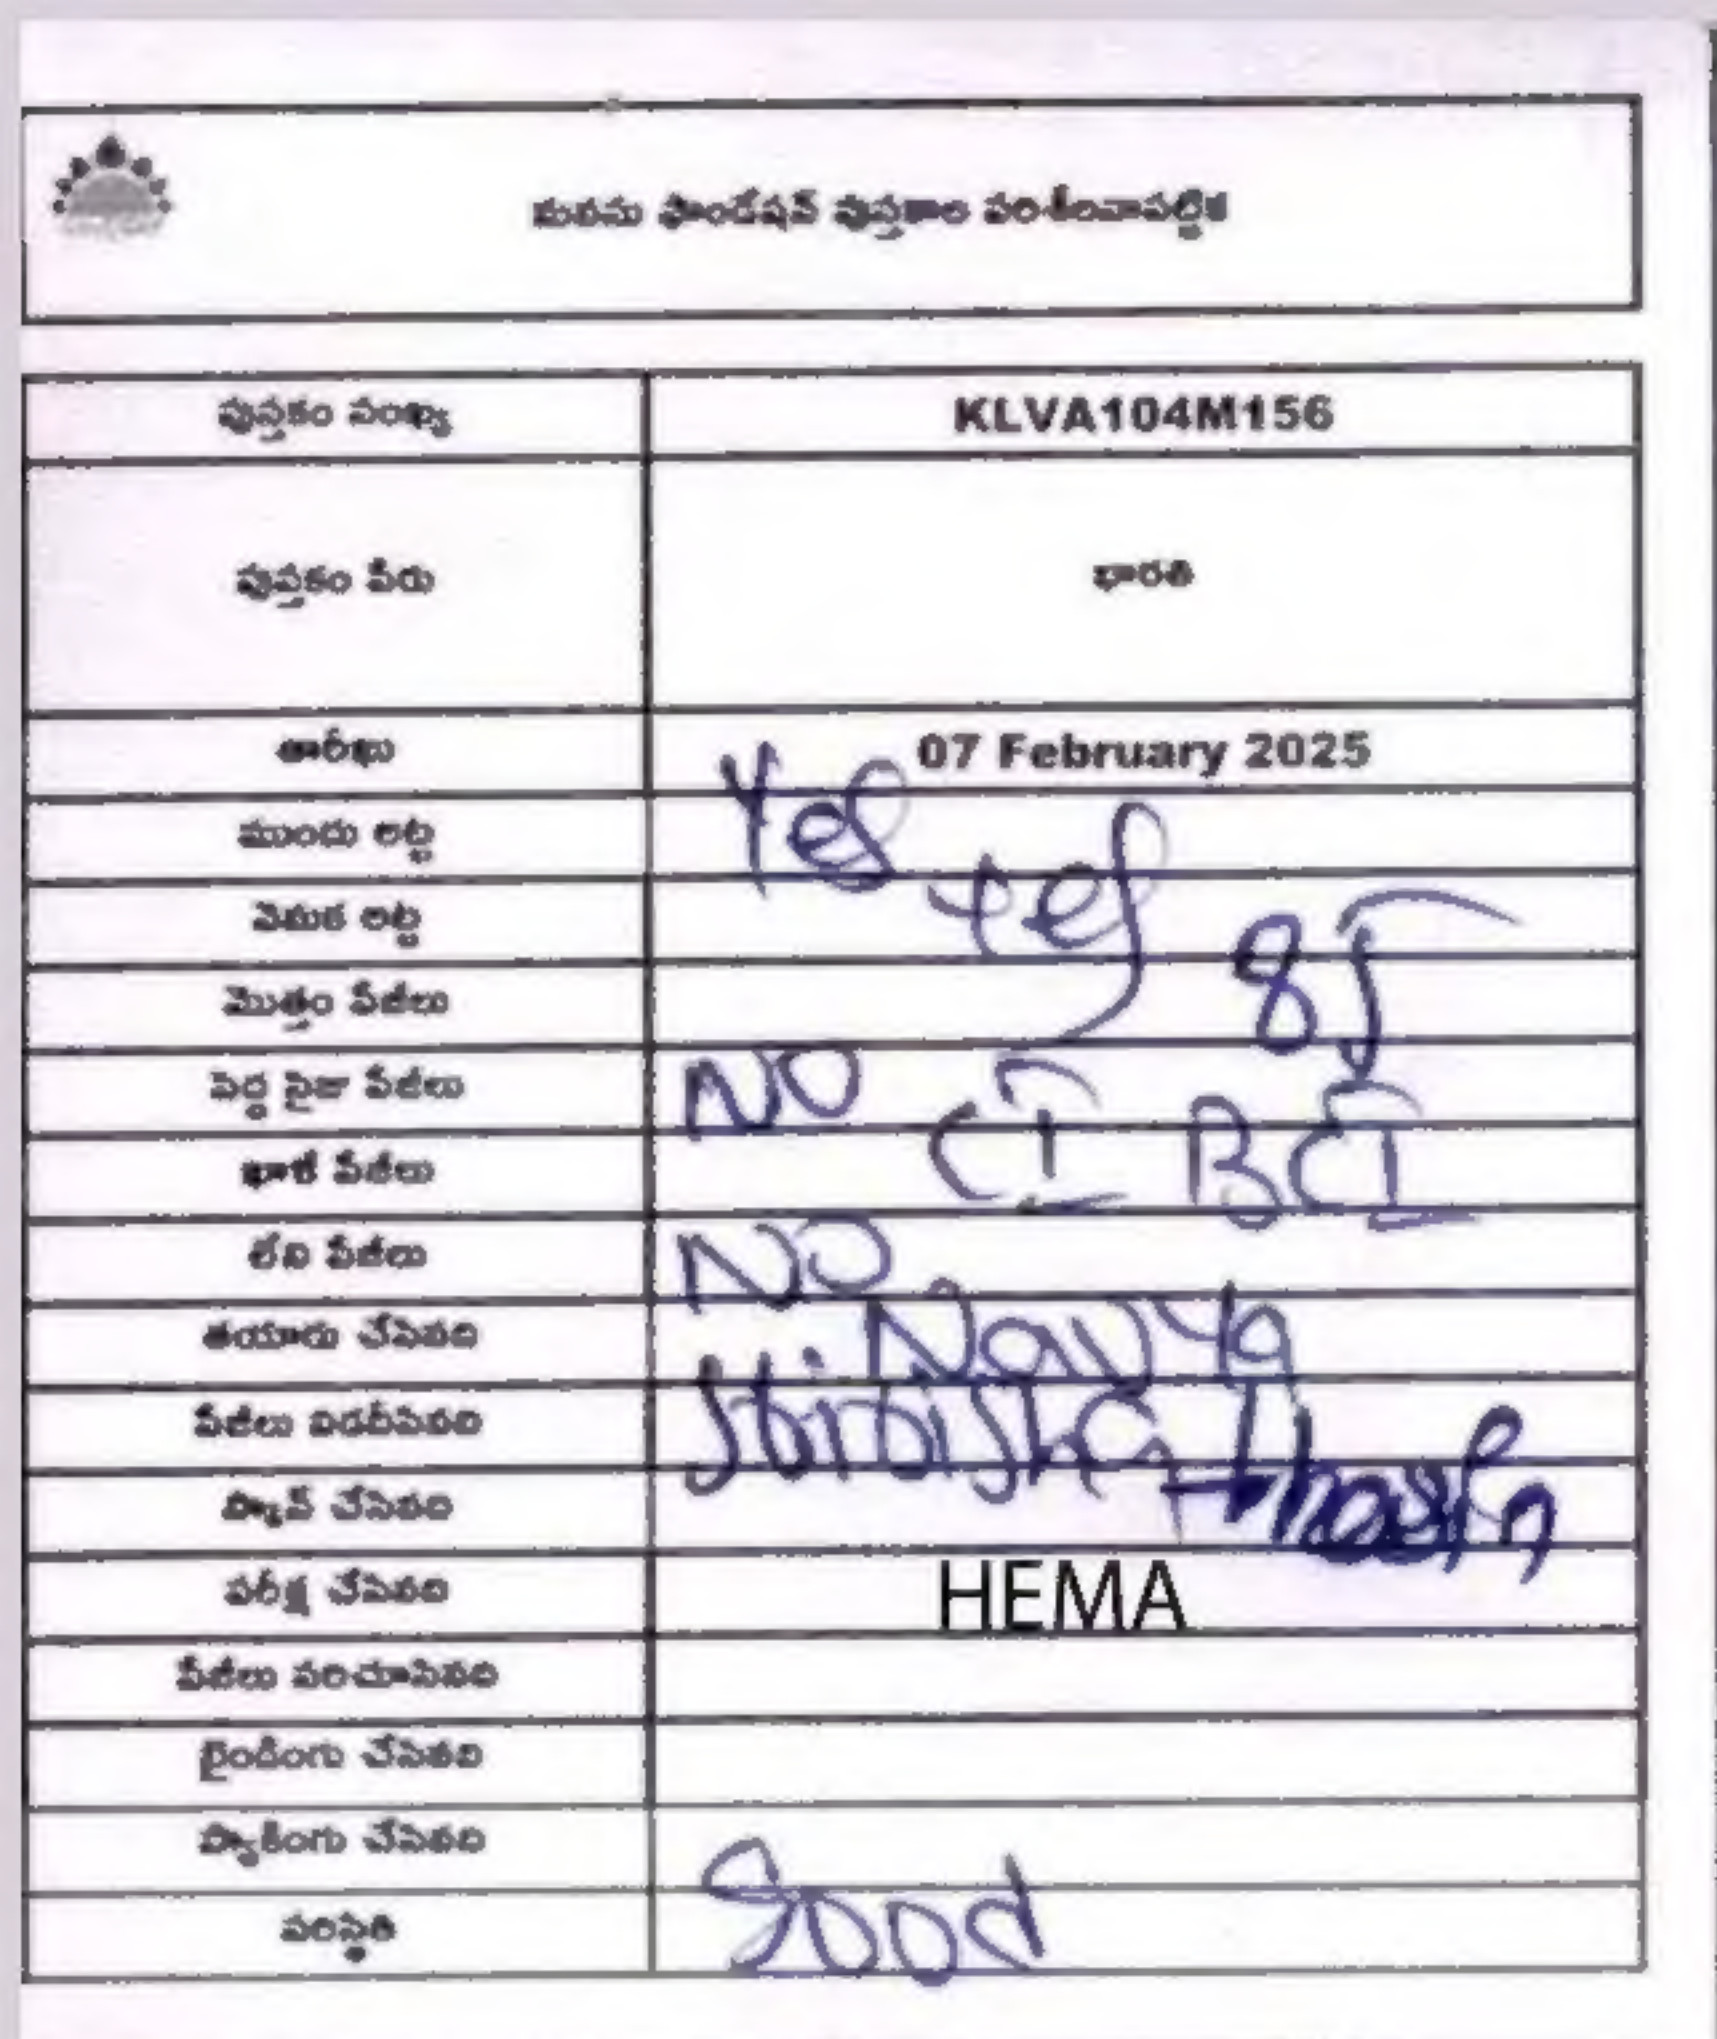 మనసు ఫౌండేషన్ పుస్తకాల పరిశీలనాపట్టిక
పుస్తకం సంఖ్య KLVA104M156
పుస్తకం పేరు భారతి
తారీఖు 07 February 2025
ముందు అట్ట Yes
వెనుక అట్ట Yes
మొత్తం పేజీలు 85
పెద్ద సైజు పేజీలు NO
ఖాళీ పేజీలు CI BCI
లేని పేజీలు NO
తయారు చేసినది Navya
పేజీలు విడదీసినది
స్కాన్ చేసినది
పరీక్ష చేసినది HEMA
పేజీలు సరిచూసినది
బైండింగు చేసినది
ప్యాకింగు చేసినది
పరిస్థితి Good